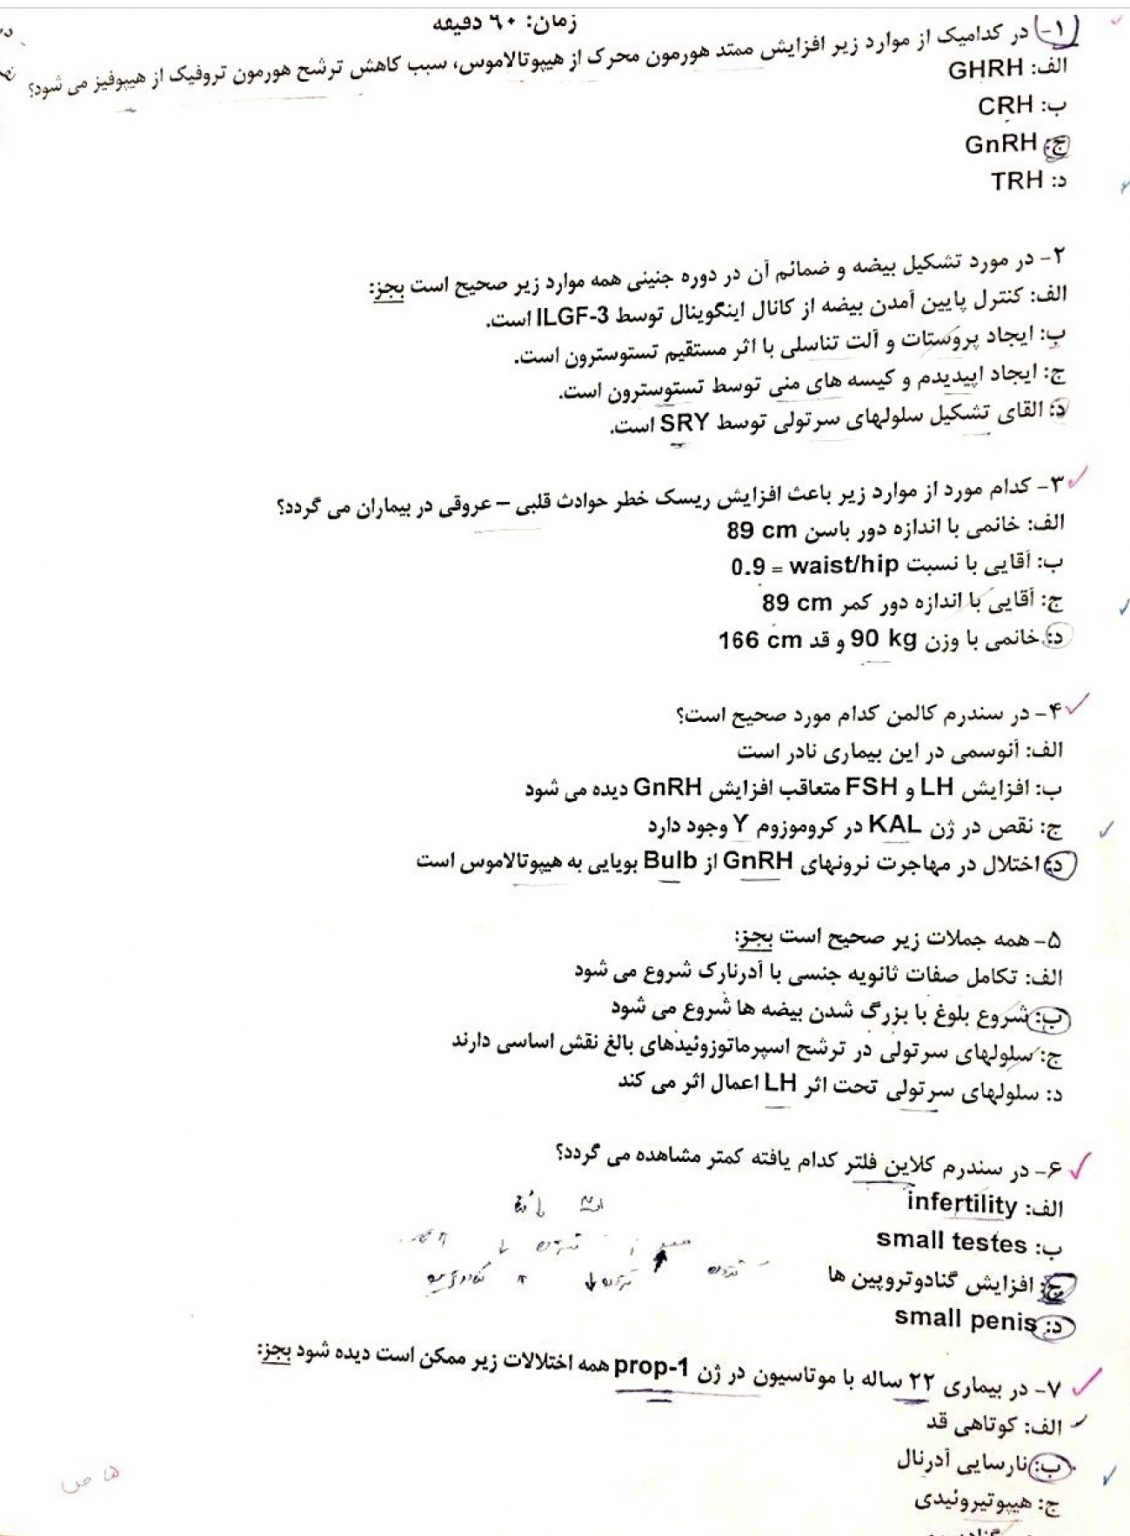 زمان: ۹۰ دقیقه
۱- در کدامیک از موارد زیر افزایش ممتد هورمون محرک از هیپوتالاموس، سبب کاهش ترشح هورمون تروفیک از هیپوفیز می شود؟
الف: GHRH
ب: CRH
ج: GnRH
د: TRH
۲- در مورد تشکیل بیضه و ضمائم آن در دوره جنینی همه موارد زیر صحیح است بجز:
الف: کنترل پایین آمدن بیضه از کانال اینگوینال توسط ILGF-3 است.
ب: ایجاد پروستات و آلت تناسلی با اثر مستقیم تستوسترون است.
ج: ایجاد اپیدیدم و کیسه های منی توسط تستوسترون است.
د: القای تشکیل سلولهای سرتولی توسط SRY است.
۳- کدام مورد از موارد زیر باعث افزایش ریسک خطر حوادث قلبی – عروقی در بیماران می گردد؟
الف: خانمی با اندازه دور باسن 89 cm
ب: آقایی با نسبت waist/hip = 0.9
ج: آقایی با اندازه دور کمر 89 cm
د: خانمی با وزن 90 kg و قد 166 cm
۴- در سندرم کالمن کدام مورد صحیح است؟
الف: آنوسمی در این بیماری نادر است
ب: افزایش LH و FSH متعاقب افزایش GnRH دیده می شود
ج: نقص در ژن KAL در کروموزوم Y وجود دارد
د: اختلال در مهاجرت نرونهای GnRH از Bulb بویایی به هیپوتالاموس است
۵- همه جملات زیر صحیح است بجز:
الف: تکامل صفات ثانویه جنسی با آدرنارک شروع می شود
ب: شروع بلوغ با بزرگ شدن بیضه ها شروع می شود
ج: سلولهای سرتولی در ترشح اسپرماتوزوئیدهای بالغ نقش اساسی دارند
د: سلولهای سرتولی تحت اثر LH اعمال اثر می کند
۶- در سندرم کلاین فلتر کدام یافته کمتر مشاهده می گردد؟
الف: infertility
ب: small testes
ج: افزایش گنادوتروپین ها
د: small penis
۷- در بیماری ۲۲ ساله با موتاسیون در ژن prop-1 همه اختلالات زیر ممکن است دیده شود بجز:
الف: کوتاهی قد
ب: نارسایی آدرنال
ج: هیپوتیروئیدی